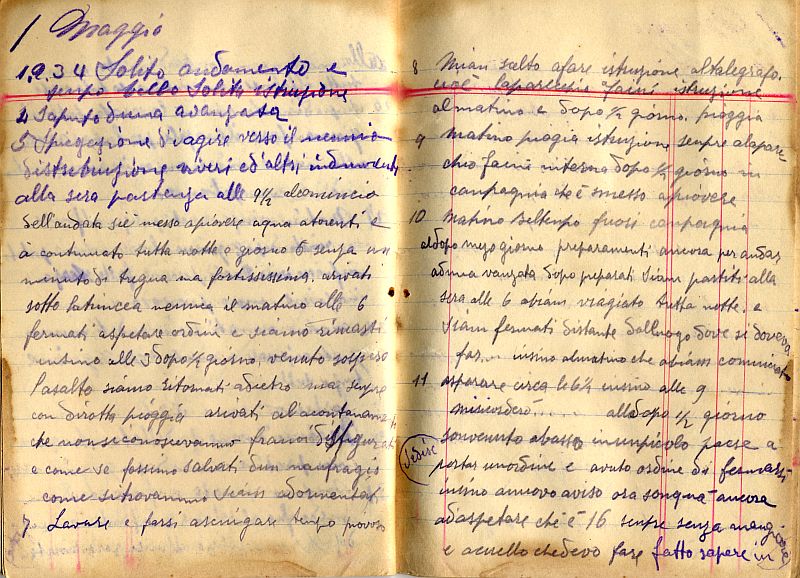 1 Maggio
1.2.3 4 Solito andamento e
tempo bello Solita istruzione
4 Saputo duna avanzata
5 Spiegazione di agire verso il nemico
distribuizione viveri ed'altri indumenti
alla sera partenza alle 9½ alcomincio
dell'andata siè messo apiovere aqua atorenti e
à continuato tutta notte e giorno 6 senza un
minuto di tregua ma fortissima. arivati
sotto latrincea nemica il matino alle 6
fermati aspetare ordini e siamo rimasti
insino alle 3 dopo ½ giorno, venuto sospeso
l'asalto siamo ritornati adietro ma sempre
con dirotta pioggia arivati al acantonam
che nonsiconoscievanno
e come se fossimo salvati dun naufragio
come sitrovanno Siam adormentati
7 Lavare e farsi asciugare tempo piovoso
8 Mian salto afare istruzione altalegrafo.
cioè laparecchio faini istruzione
almatino e dopo ½ giorno, pioggia
9 Matino piogia istruzione senpre alapare
chio faini interna dopo ½ giorno in
compagnia che è smesso apiovere
10 Matino beltenpo fuori compagnia
aldopo mezogiorno preparamenti ancora per andar
aduna vanzata dopo preparati Siam partiti alla
sera alle 6 abiam viagiato tutta notte. e
Siam fermati distante dalluogo dove si doveva
far... insino almatino che abiam cominciato
11 asparare circa le 6¼ insino alle 9
alldopo ½ giorno
sonvenuto abasso inunpicolo paese a
portar unordine e avuto ordine di fermarsi
insino annuovo aviso ora sonqua ancora
adaspetare che è 16 senpre senza mangiare
e aquello chedevo fare fatto sapere in